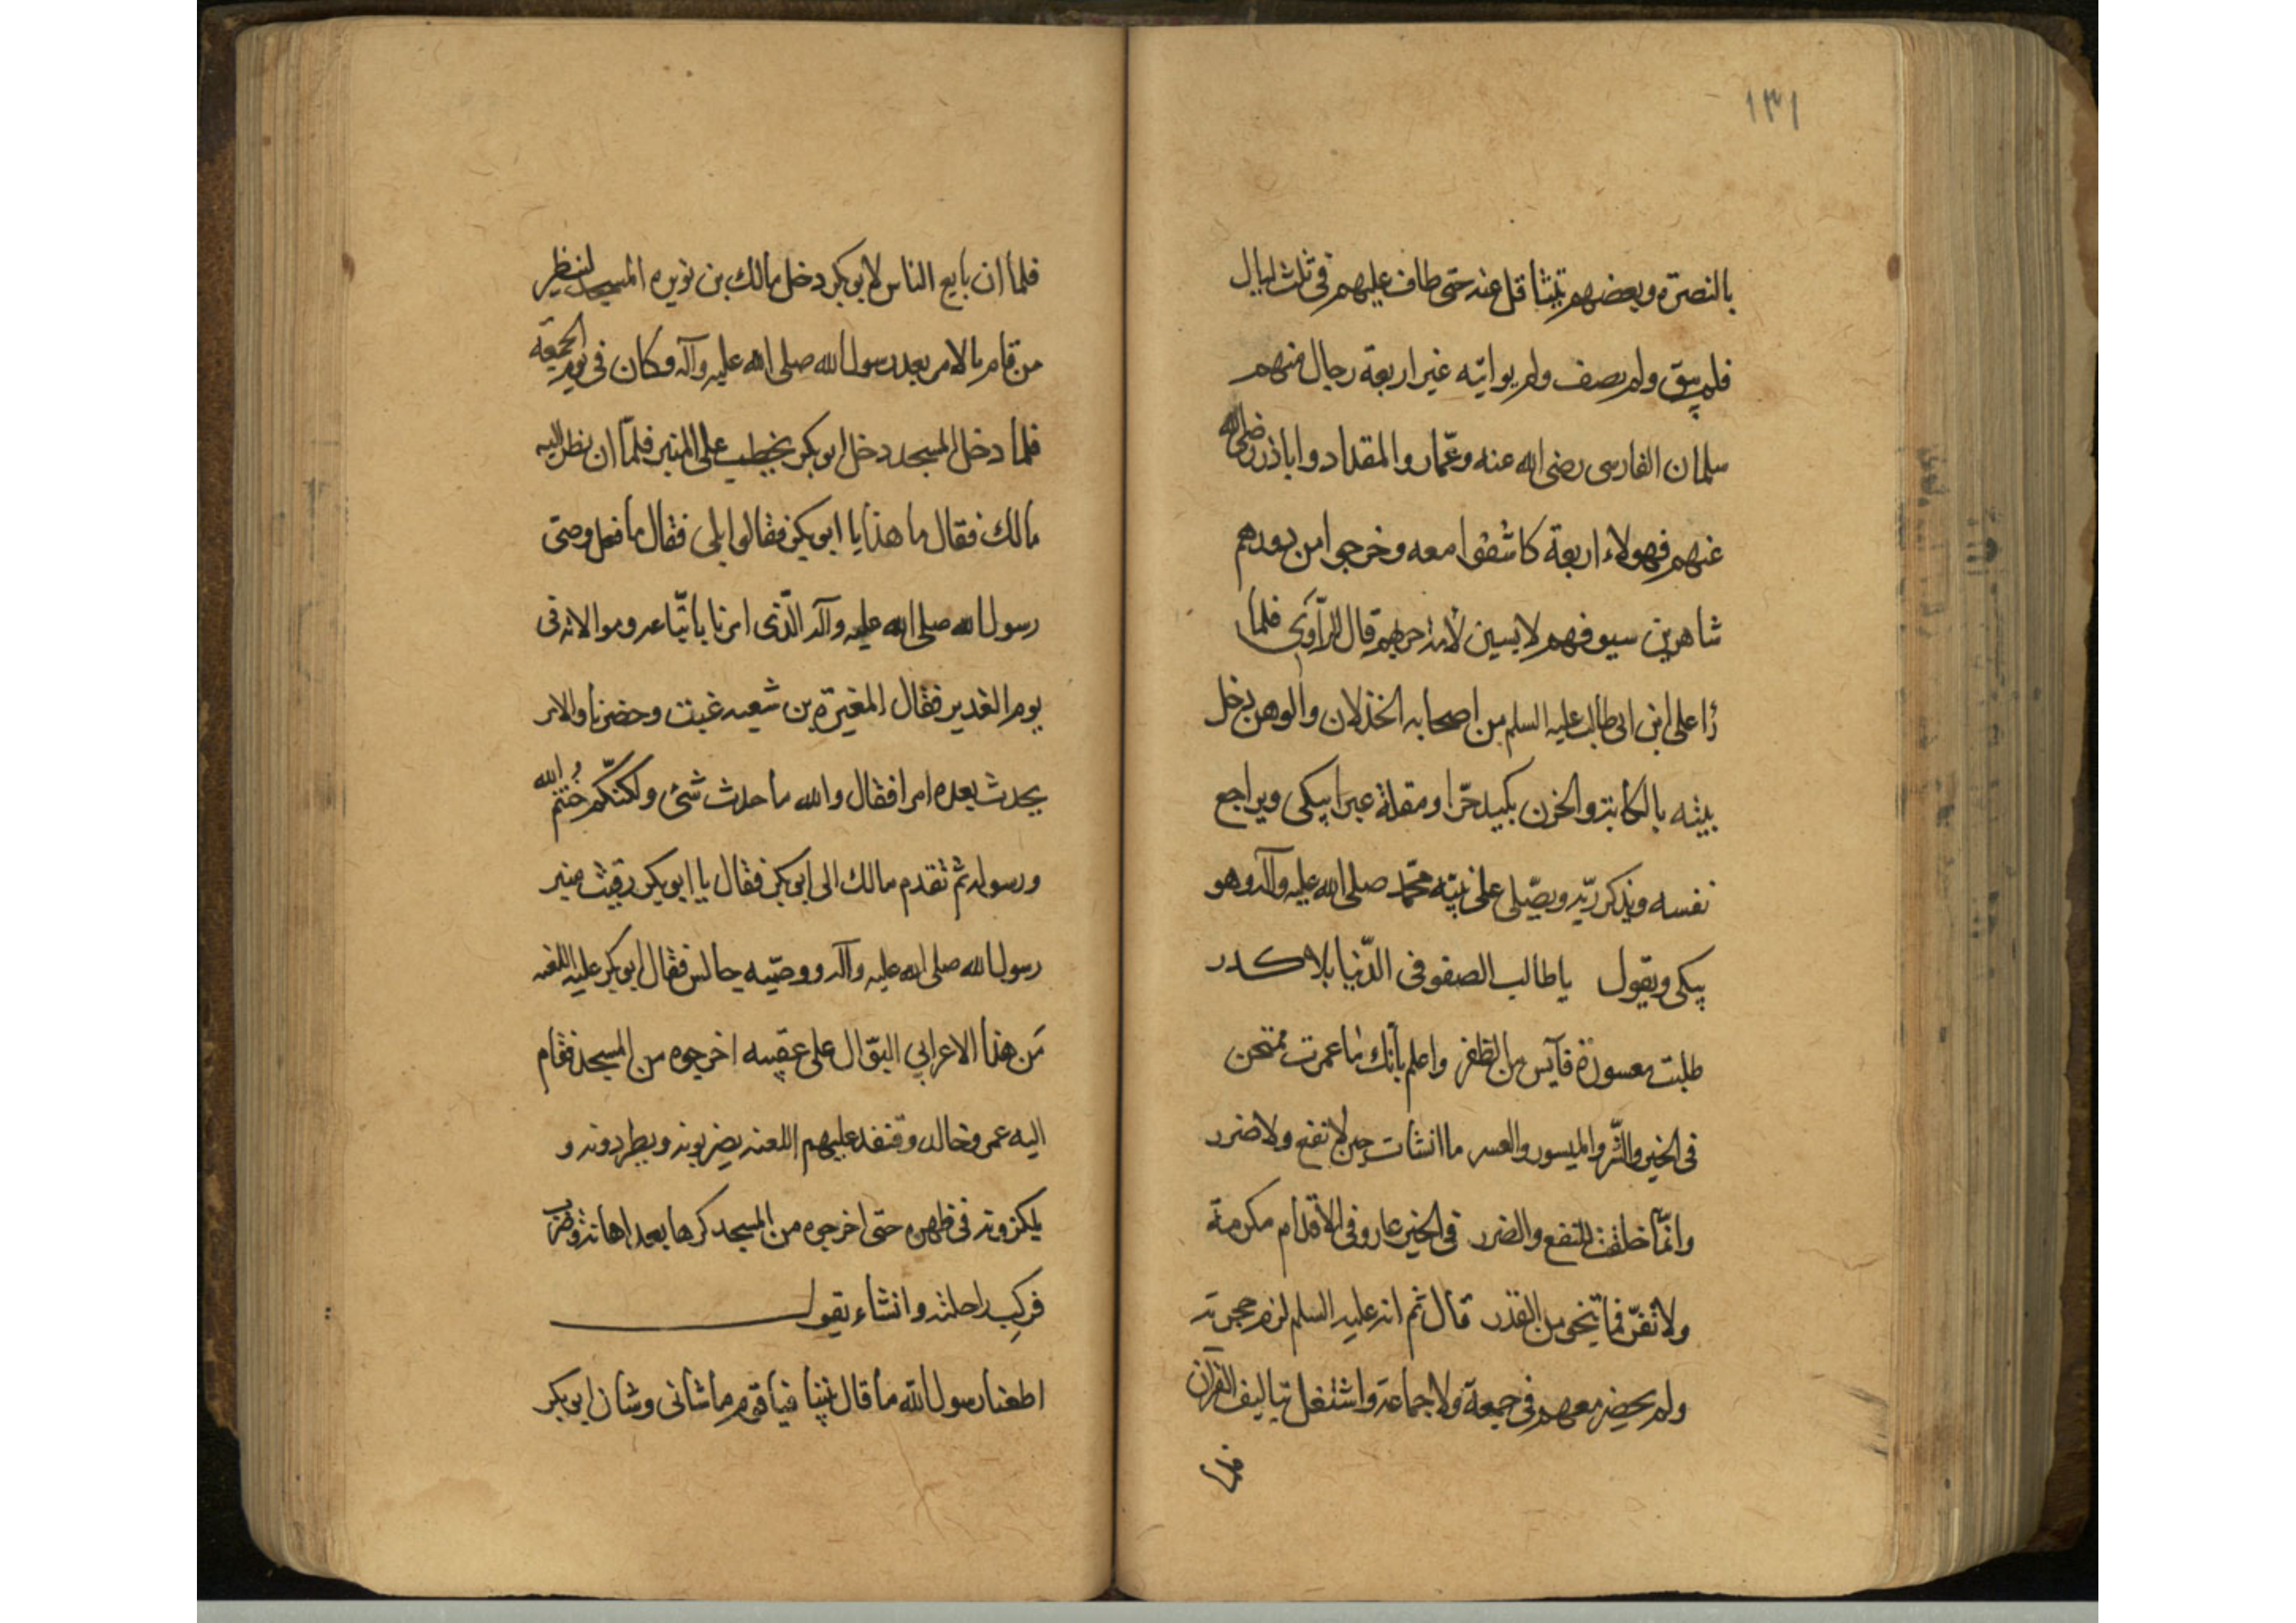 ١٣١
بالنصرة وبعضهم تيثاقل عنه حتى طاف عليهم فى ثلث ليال
فلم يبق ولم يصف ولم يواتيه غير اربعة رجال منهم
سلمان الفارسى رضى الله عنه وعمّار والمقداد واباذر رضى الله
عنهم فهولاء اربعة كاشفوا معه وخرجوا من دورهم
شاهرين سيوفهم لابسين لأمة حربهم قال الرّاوى فلما
رٔا على ابن ابى طالب عليه السلم من اصحابه الخذلان والوهن دخل
بيته بالكابة والحزن بكبد حرّا ومقلة عبرا يبكى ويراجع
نفسه ويذكر ربّه ويصلّى على نبيّه محمّد صلى الله عليه وآله وهو
يبكى ويقول يا طالب الصفو فى الدّنيا بلا كدر
طلبت معسورة فآيس من الظفر واعلم بأنك ما عمرت ممتحن
فى الخير والشّر والميسور والعسر ما انشات حين لا نفع ولا ضرر
وانّما خلقت للنفع والضرر فى الجبن عار وفى الأقدام مكرمة
ولا تفرّ فما تنجى من القدر قال ثم انه عليه السلم لزم حجرته
ولم يحضر معهم فى جمعة ولا جماعة واشتغل بتاليف القرآن
فلما ان بايع الناس لابو بكر دخل مالك بن نويره المسجد لينظر
من قام بالامر بعد رسول الله صلى الله عليه وآله وكان فى يوم الجمعة
فلما دخل المسجد دخل ابو بكر يخطب على المنبر فلمّا ان نظر اليه
مالك فقال ما هذا يا ابو بكر فقالوا بلى فقال ما فعل وصى
رسول الله صلى الله عليه وآله الّذى امرنا باتّباعه وموالاته فى
يوم الغدير فقال المغيرة بن شعبه غبت وحضرنا والامر
يحدث بعده امرا فقال والله ما حدث شئ ولكنّكم خُنتم الله
ورسوله ثم تقدم مالك الى ابو بكر فقال يا ابو بكر رقيت منبر
رسول الله صلى الله عليه وآله ووصيّه جالس فقال ابو بكر عليه اللعنه
مَن هذا الاعرابي البوّال على عقبيه اخرجوه من المسجد فقام
اليه عمر وخالد وقنفد عليهم اللعنه يضربونه ويطردونه و
يلكزونه فى ظهره حتى اخرجوه من المسجد كرها بعد اهانة وضرب
فركب راحلته وانشاء يقول
اطعنا رسول الله ما قال بيننا فيا قوم ما شانى وشان ابو بكر